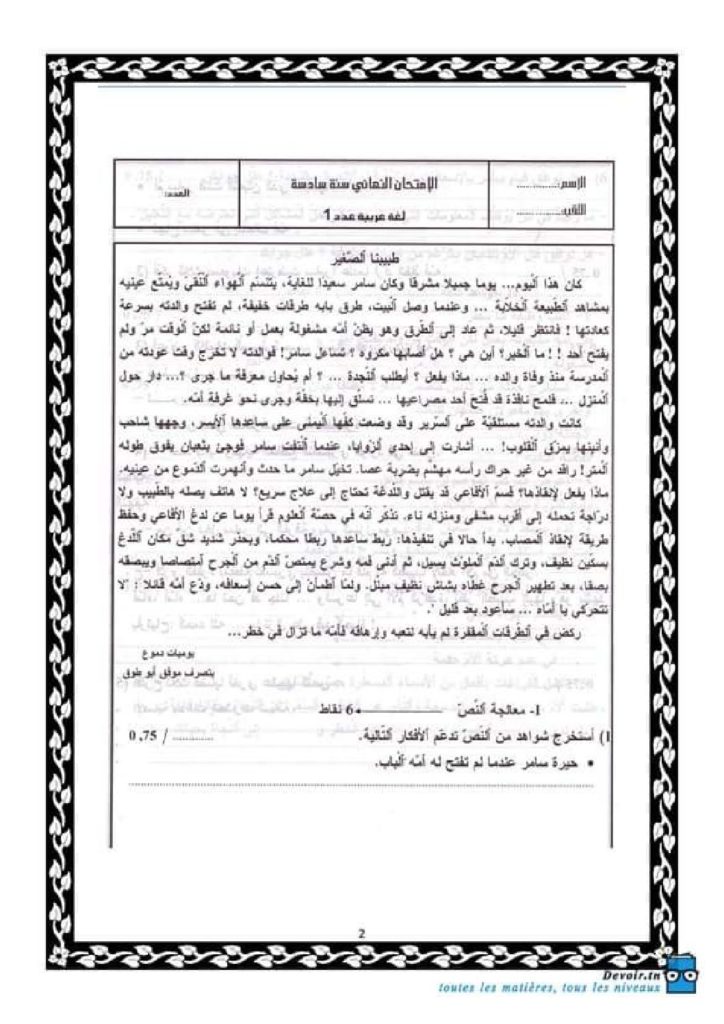 الإسم:................
اللقب:................
الإمتحان النهائي سنة سادسة
لغة عربية عدد 1
العدد:
طبيبنا ٱلصّغير
كان هذا ٱليوم... يوما جميلا مشرقا وكان سامر سعيدا للغاية، يتنسّم ٱلهواء ٱلنّقيّ ويمتّع عينيه
بمشاهد ٱلطّبيعة ٱلخلاّبة ... وعندما وصل ٱلبيت، طرق بابه طرقات خفيفة، لم تفتح والدته بسرعة
كعادتها ! فانتظر قليلا، ثم عاد إلى ٱلطّرق وهو يظنّ أمّه مشغولة بعمل أو نائمة لكنّ ٱلوقت مرّ ولم
يفتح أحد ! ! ما ٱلخبر؟ أين هي ؟ هل أصابها مكروه ؟ تساءل سامر! فوالدته لا تخرج وقت عودته من
ٱلمدرسة منذ وفاة والده ... ماذا يفعل ؟ أيطلب ٱلنّجدة ... ؟ أم يُحاول معرفة ما جرى ؟... دار حول
ٱلمنزل ... فلمح نافذة قد فُتح أحد مصراعيها ... تسلّق إليها بخفّة وجرى نحو غرفة أمّه.
كانت والدته مستلقيّة على ٱلسّرير وقد وضعت كفّها ٱليمنى على ساعدها ٱلأيسر، وجهها شاحب
وأنينها يمزّق ٱلقلوب! ... أشارت إلى إحدى ٱلزّوايا، عندما ٱلتفت سامر فوجئ بثعبان يفوق طوله
ٱلمتر! راقد من غير حراك رأسه مهشّم بضربة عصا. تخيّل سامر ما حدث وٱنهمرت ٱلدّموع من عينيه.
ماذا يفعل لإنقاذها؟ فسمّ ٱلأفاعي قد يقتل وٱللّدغة تحتاج إلى علاج سريع؟ لا هاتف يصله بالطّبيب ولا
درّاجة تحمله إلى أقرب مشفى ومنزله ناء. تذكّر أنّه في حصّة ٱلعلوم قرأ يوما عن لدغ الأفاعي وحفظ
طريقة لإنقاذ ٱلمصاب. بدأ حالا في تنفيذها: ربط ساعدها ربطا محكما، وبحذر شديد شقّ مكان ٱللّدغ
بسكين نظيف، وترك ٱلدّم ٱلملوّث يسيل، ثم أدنى فمه وشرع يمتصّ ٱلدّم من ٱلجرح ٱمتصاصا ويبصقه
بصقا، بعد تطهير ٱلجرح غطّاه بشاش نظيف مبلّل. ولمّا ٱطمأنّ إلى حسن إسعافه، ودّع أمّه قائلا : "لا
تتحرّكي يا أمّاه ... سأعود بعد قليل ".
ركض في ٱلطّرقات ٱلمقفرة لم يأبه لتعبه وإرهاقه فأمّه ما تزال في خطر...
يوميات دموع
بتصرف موفق أبو طوق
1- معالجة ٱلنّصّ 6 نقاط
1) أستخرج شواهد من ٱلنّصّ تدعّم ٱلأفكار ٱلتّالية. ........... / 0,75
• حيرة سامر عندما لم تفتح له أمّه ٱلباب.
2
Devoir.tn
toutes les matières, tous les niveaux